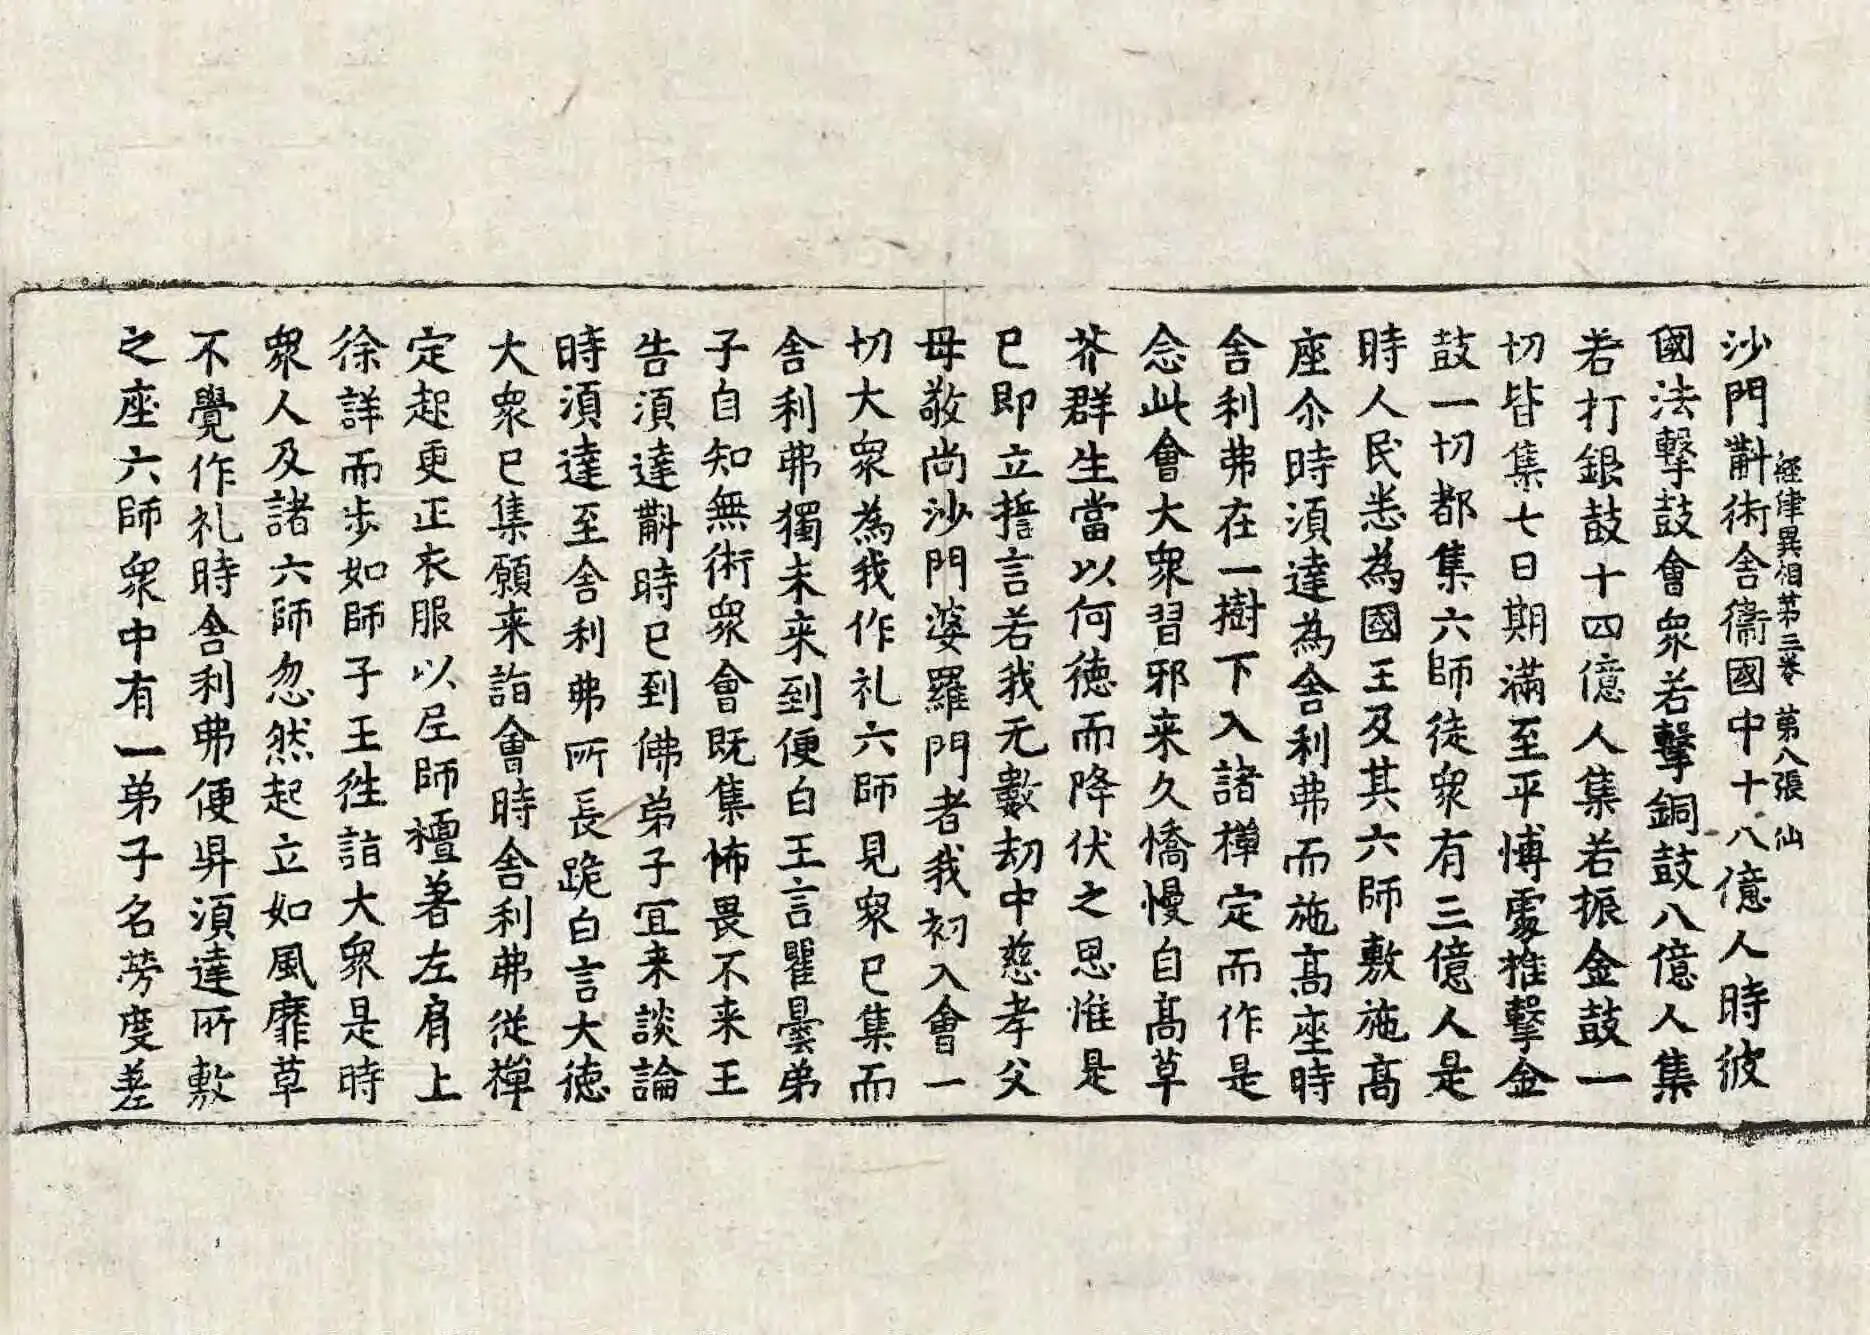 經律異相苐三卷 苐八張 仙
沙門㪷術舍衛國中十八億人時彼
國法擊鼓會衆若擊銅鼓八億人集
若打銀鼓十四億人集若振金鼓一
切皆集七日期滿至平博處椎擊金
鼓一切都集六師徒衆有三億人是
時人民悉為國王及其六師敷施髙
座尒時湏達為舍利弗而施髙座時
舍利弗在一樹下入諸禪定而作是
念此會大衆習邪来久憍慢自髙草
芥群生當以何徳而降伏之思惟是
已即立誓言若我无數劫中慈孝父
母敬尚沙門婆羅門者我初入會一
切大衆為我作礼六師見衆已集而
舍利弗獨未来到便白王言瞿曇弟
子自知無術衆會既集怖畏不来王
告湏達㪷時已到佛弟子宜来談論
時湏達至舍利弗所長跪白言大徳
大衆已集願来詣會時舍利弗從禪
定起更正衣服以尼師檀著左肩上
徐詳而步如師子王徃詣大衆是時
衆人及諸六師忽然起立如風靡草
不覺作礼時舍利弗便昇湏達所敷
之座六師衆中有一弟子名勞度差